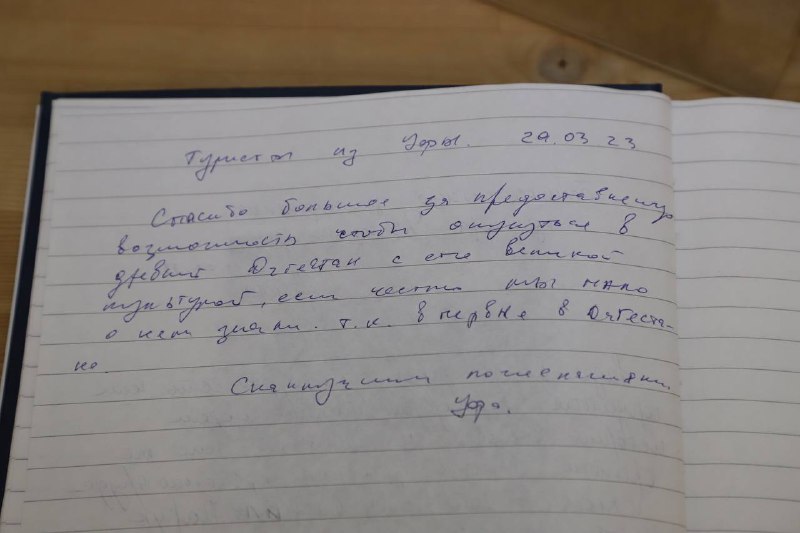 Туристы из Уфы. 29.03 23
Спасибо большое за предоставленную
возможность чтобы окунуться в
древний Дагестан с его великой
культурой, если честно мы мало
о нем знали. т.к. впервые в Дагеста-
не.
С наилучшими пожеланиями
Уфа.